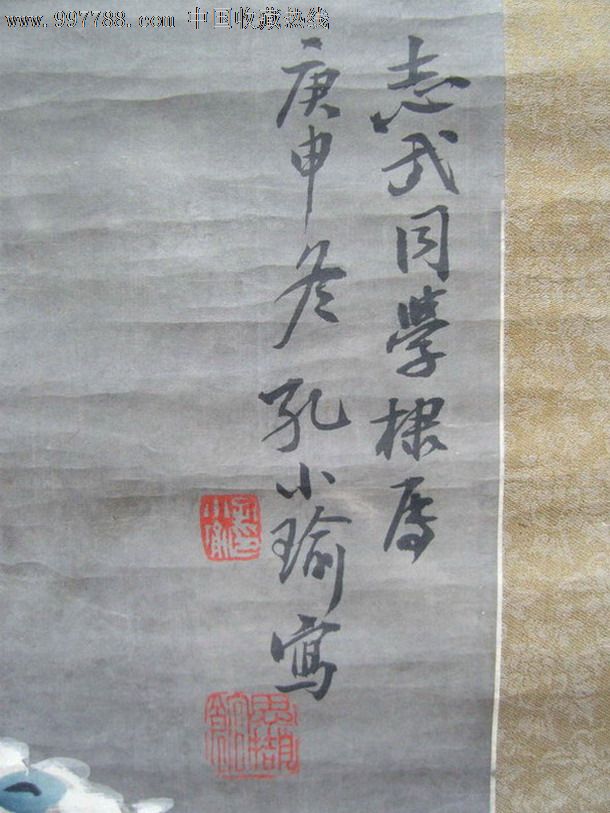 www.997788.com 中国收藏热线
志武同學棣屬
庚申冬 孔小瑜寫
小瑜